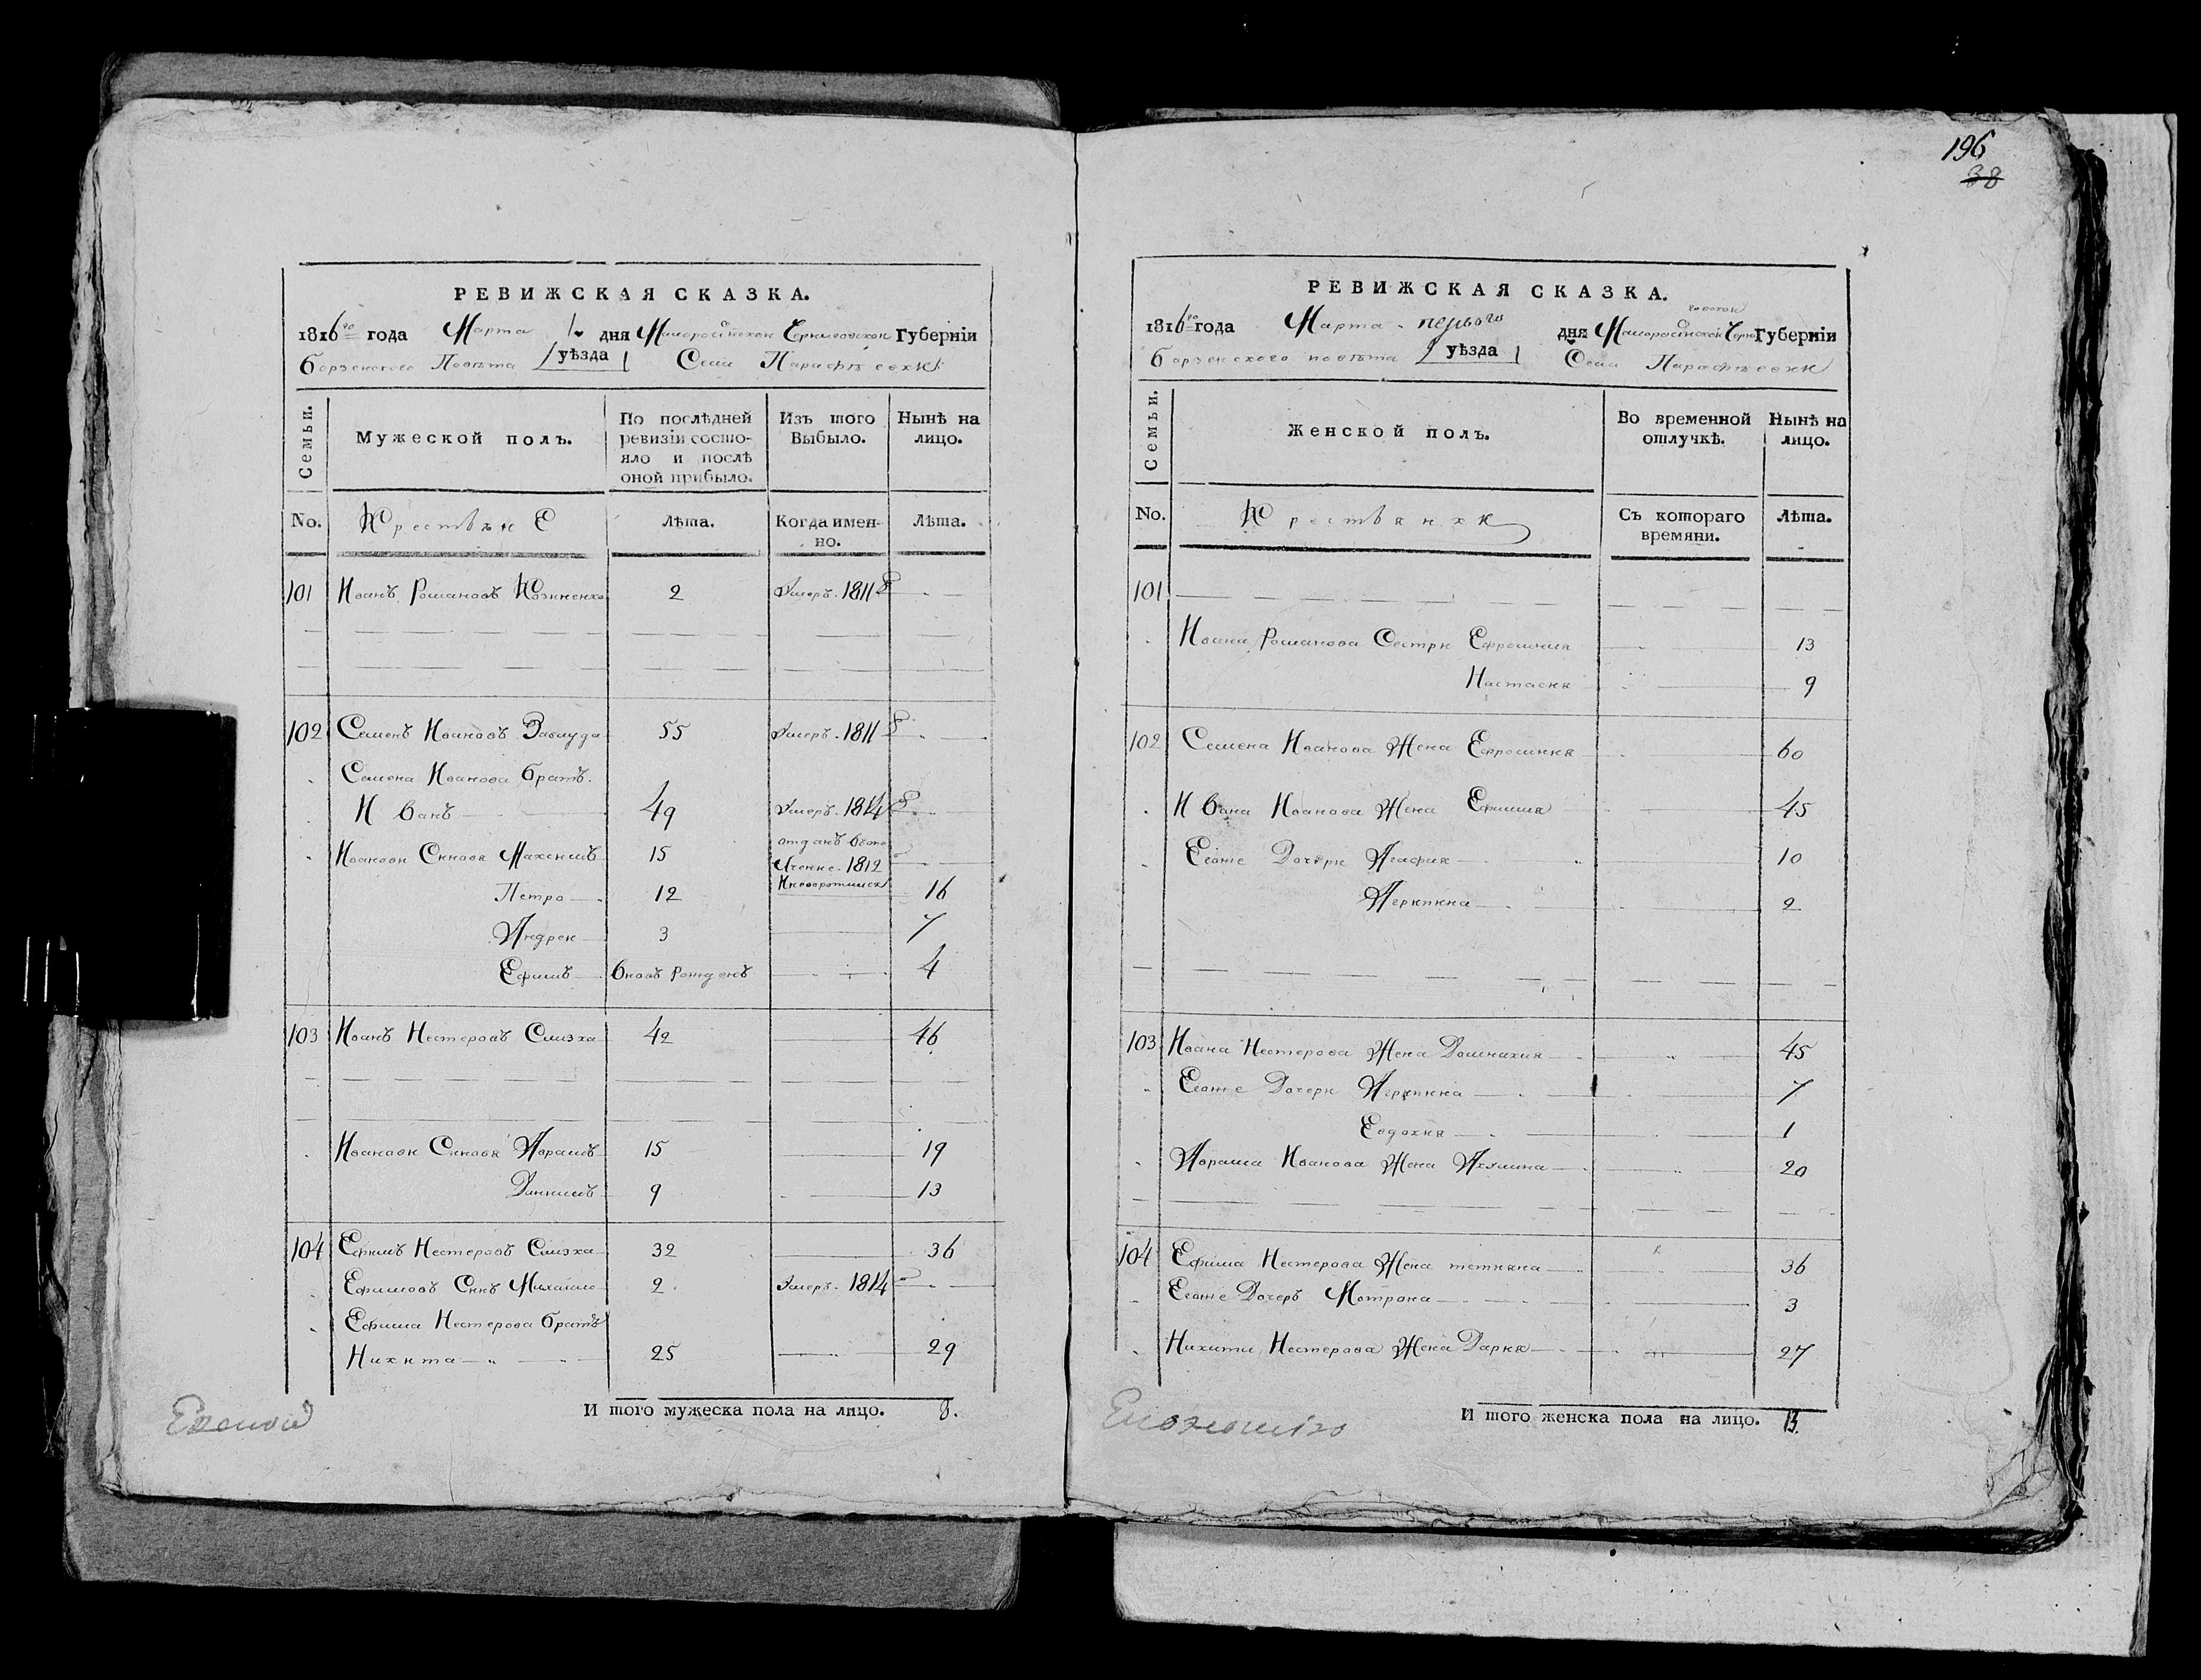 196
38
РЕВИЖСКАЯ СКАЗКА.
1816го года Марта 1. дня Малоросійской Черниговской Губерніи
Борзенского Повѣта уѣзда Села Парафѣевки
Семьи.
Мужеской полъ.
По послѣдней ревизіи состояло и послѣ оной прибыло.
Изъ того Выбыло.
Нынѣ на лицо.
No. Крестьяне Лѣта. Когда именно. Лѣта.
101 Иванъ Романовъ 2 Умеръ 1811
102 Семенъ Ивановъ 55 Умеръ 1811
Семена Иванова братъ
Иванъ 49 Умеръ 1814
Ивановы Сыновя Максимъ 15 отданъ 1812
Петро 12 16
Андрей 3 7
Ефимъ вновь рожденъ 4
103 Иванъ Нестеровъ Слизка 42 46
Ивановы Сыновя Аврамъ 15 19
Данилъ 9 13
104 Ефимъ Нестеровъ Слизка 32 36
Ефимовъ Сынъ Михайло 2 Умеръ 1814
Ефима Нестерова братъ
Никита 25 29
И того мужеска пола на лицо. 8.
РЕВИЖСКАЯ СКАЗКА.
1816го года Марта первого дня Малоросійской Черниговской Губерніи
Борзенского повѣта уѣзда Села Парафѣевки
Семьи.
Женской полъ.
Во временной отлучкѣ.
Нынѣ на лицо.
No. Крестьянки Съ котораго времяни. Лѣта.
101
Ивана Романова Сестры Ефросиния 13
Настасия 9
102 Семена Иванова Жена Ефросиния 60
Ивана Иванова Жена Ефимия 45
Егоже Дочери Агафия 10
2
103 Ивана Нестерова Жена Домникия 45
Егоже Дочери 7
Евдокия 1
Аврама Иванова Жена Акулина 20
104 Ефима Нестерова Жена тетияна 36
Егоже Дочеръ Мотрона 3
Никиты Нестерова Жена Дария 27
И того женска пола на лицо. 13.